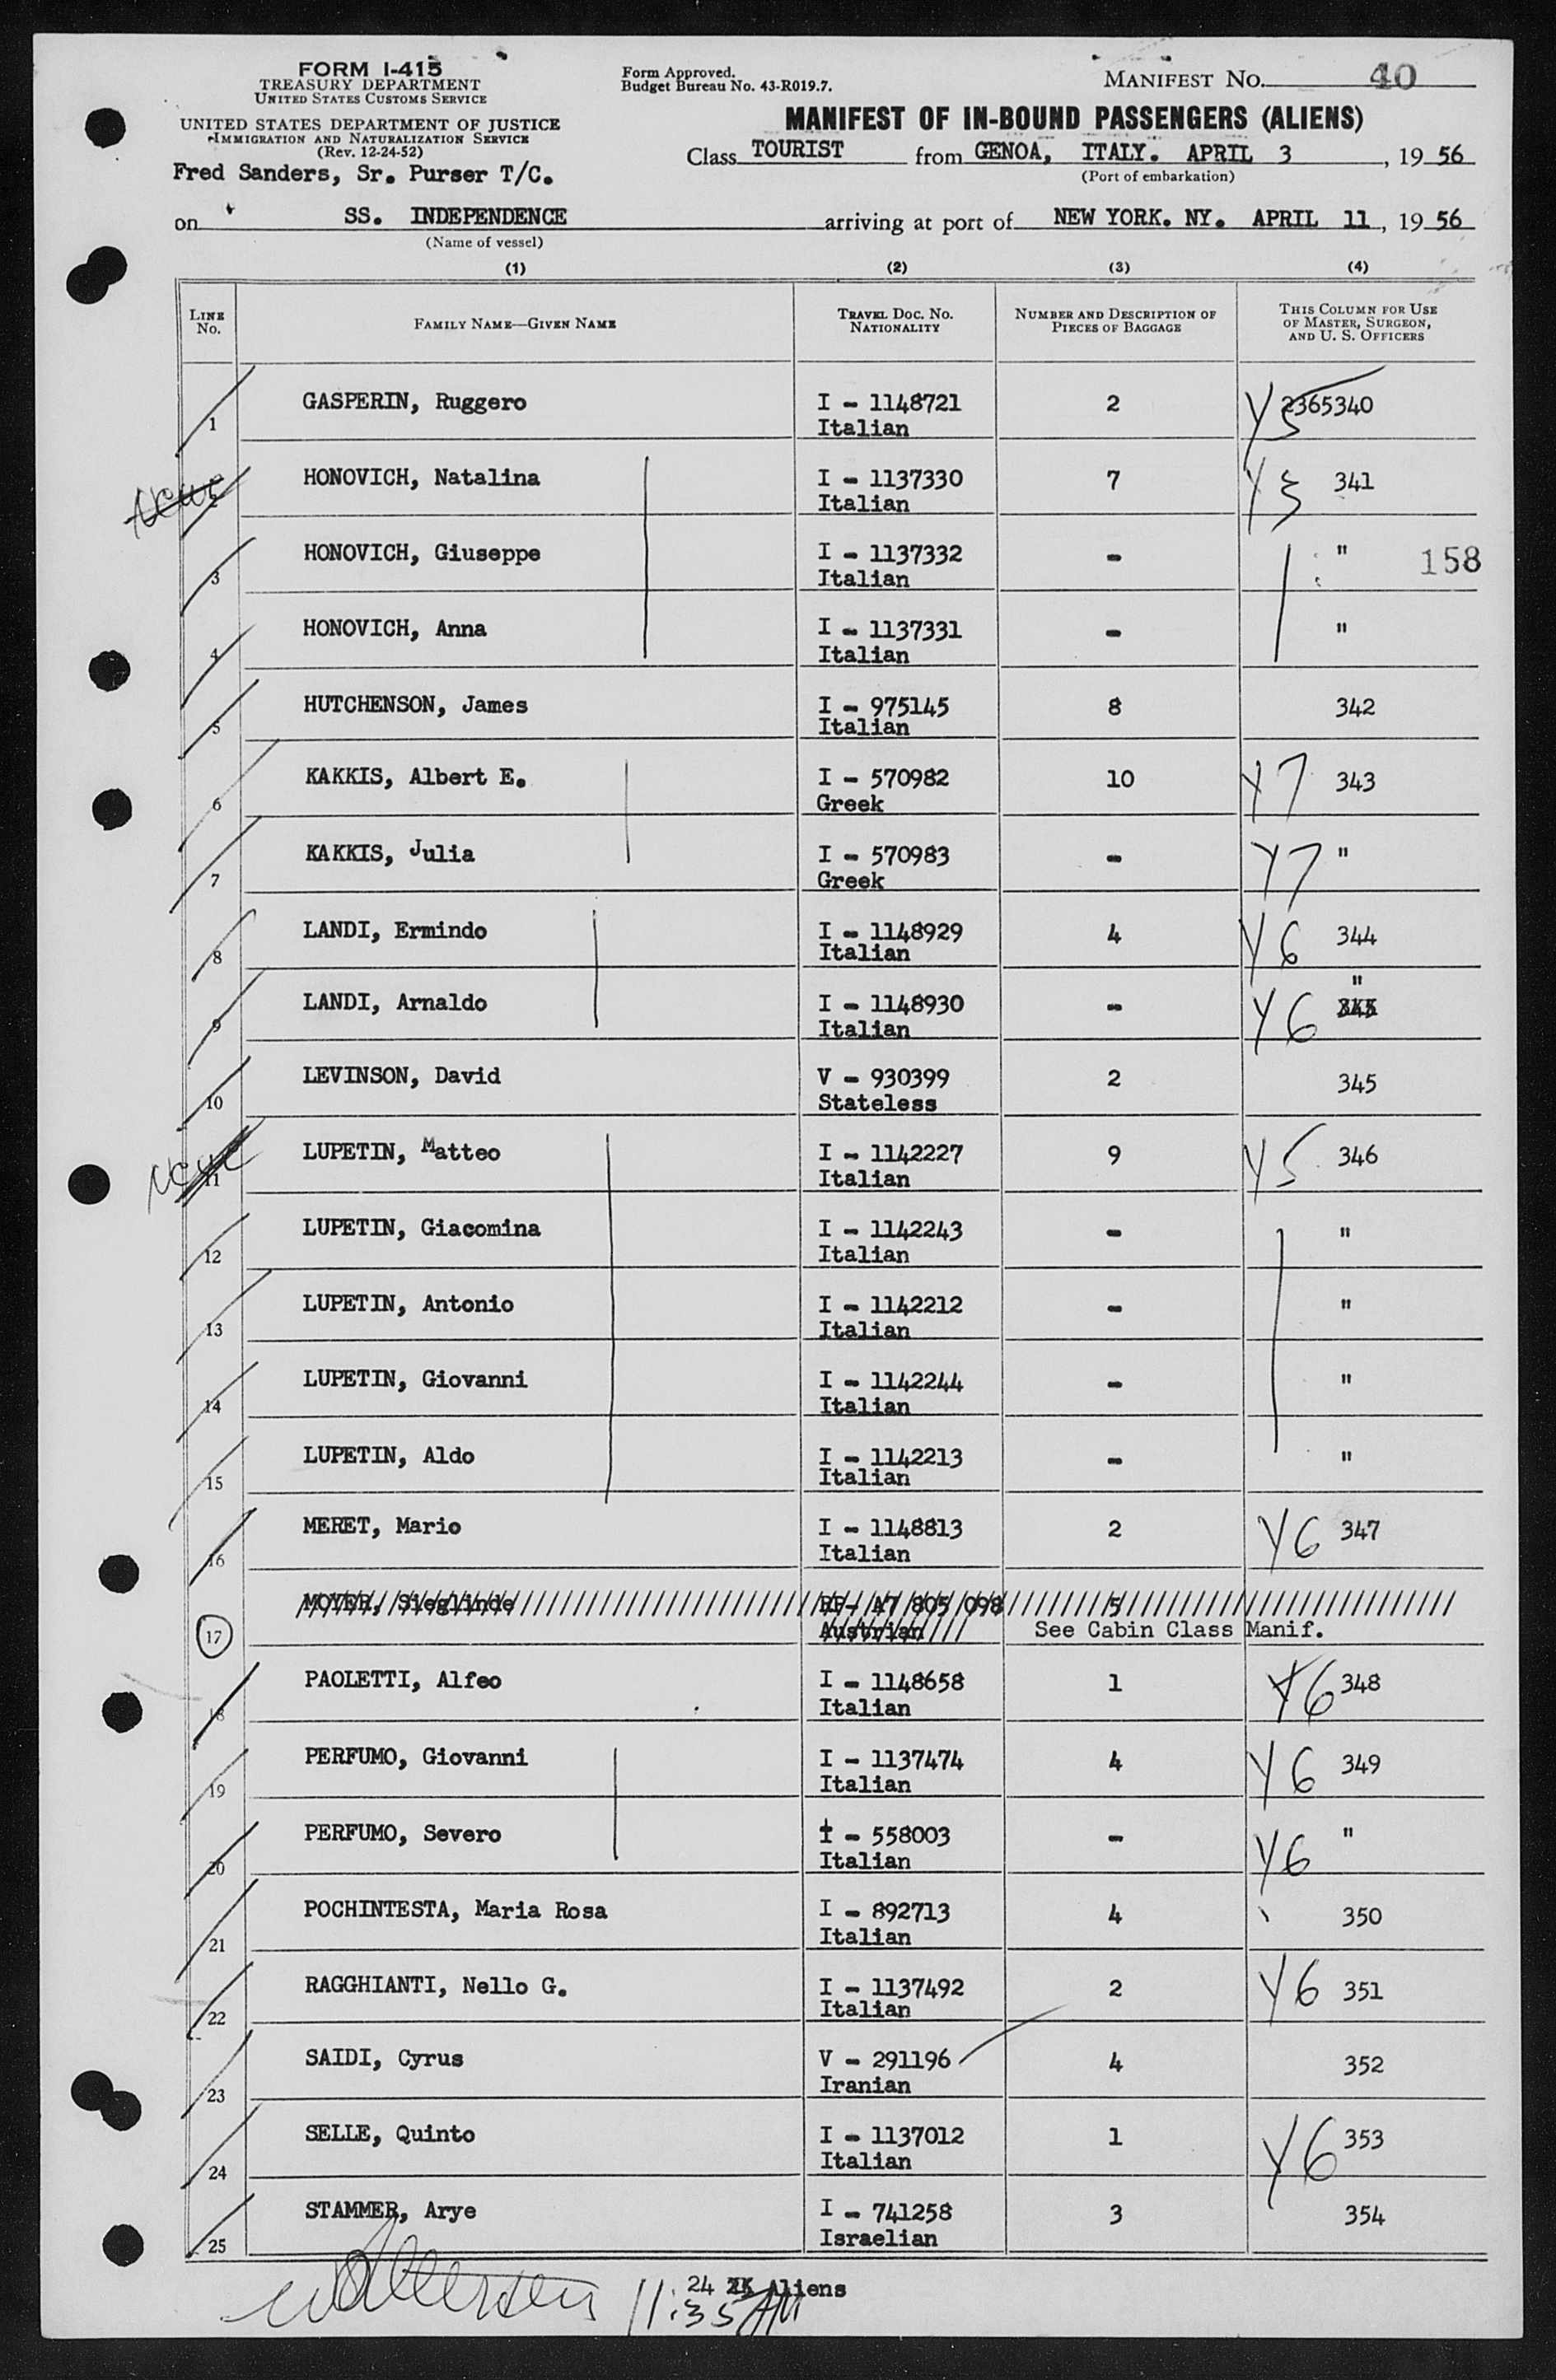 FORM I-415
TREASURY DEPARTMENT
UNITED STATES CUSTOMS SERVICE
UNITED STATES DEPARTMENT OF JUSTICE
IMMIGRATION AND NATURALIZATION SERVICE
(Rev. 12-24-52)
Fred Sanders, Sr. Purser T/C.
Form Approved.
Budget Bureau No. 43-R019.7.
MANIFEST NO. 40
MANIFEST OF IN-BOUND PASSENGERS (ALIENS)
Class TOURIST from GENOA, ITALY. APRIL 3, 19 56
(Port of embarkation)
on SS. INDEPENDENCE arriving at port of NEW YORK. NY. APRIL 11, 19 56
(Name of vessel)
(1) (2) (3) (4)
LINE No. FAMILY NAME—GIVEN NAME TRAVEL DOC. NO. NATIONALITY NUMBER AND DESCRIPTION OF PIECES OF BAGGAGE THIS COLUMN FOR USE OF MASTER, SURGEON, AND U. S. OFFICERS
1 GASPERIN, Ruggero I - 1148721 2 Y5 2365340
Italian
2 HONOVICH, Natalina I - 1137330 7 Y3 341
Italian
3 HONOVICH, Giuseppe I - 1137332 - " 158
Italian
4 HONOVICH, Anna I - 1137331 - "
Italian
5 HUTCHENSON, James I - 975145 8 342
Italian
6 KAKKIS, Albert E. I - 570982 10 Y7 343
Greek
7 KAKKIS, Julia I - 570983 - Y7 "
Greek
8 LANDI, Ermindo I - 1148929 4 Y6 344
Italian
9 LANDI, Arnaldo I - 1148930 - Y6 "
Italian
10 LEVINSON, David V - 930399 2 345
Stateless
11 LUPETIN, Matteo I - 1142227 9 Y5 346
Italian
12 LUPETIN, Giacomina I - 1142243 - "
Italian
13 LUPETIN, Antonio I - 1142212 - "
Italian
14 LUPETIN, Giovanni I - 1142244 - "
Italian
15 LUPETIN, Aldo I - 1142213 - "
Italian
16 MERET, Mario I - 1148813 2 Y6 347
Italian
17 MOYER, Sieglinde RP- A7 805 098 5
Austrian See Cabin Class Manif.
18 PAOLETTI, Alfeo I - 1148658 1 Y6 348
Italian
19 PERFUMO, Giovanni I - 1137474 4 Y6 349
Italian
20 PERFUMO, Severo I - 558003 - Y6 "
Italian
21 POCHINTESTA, Maria Rosa I - 892713 4 350
Italian
22 RAGGHIANTI, Nello G. I - 1137492 2 Y6 351
Italian
23 SAIDI, Cyrus V - 291196 4 352
Iranian
24 SELLE, Quinto I - 1137012 1 Y6 353
Italian
25 STAMMER, Arye I - 741258 3 354
Israelian
24 Aliens
11:35 AM